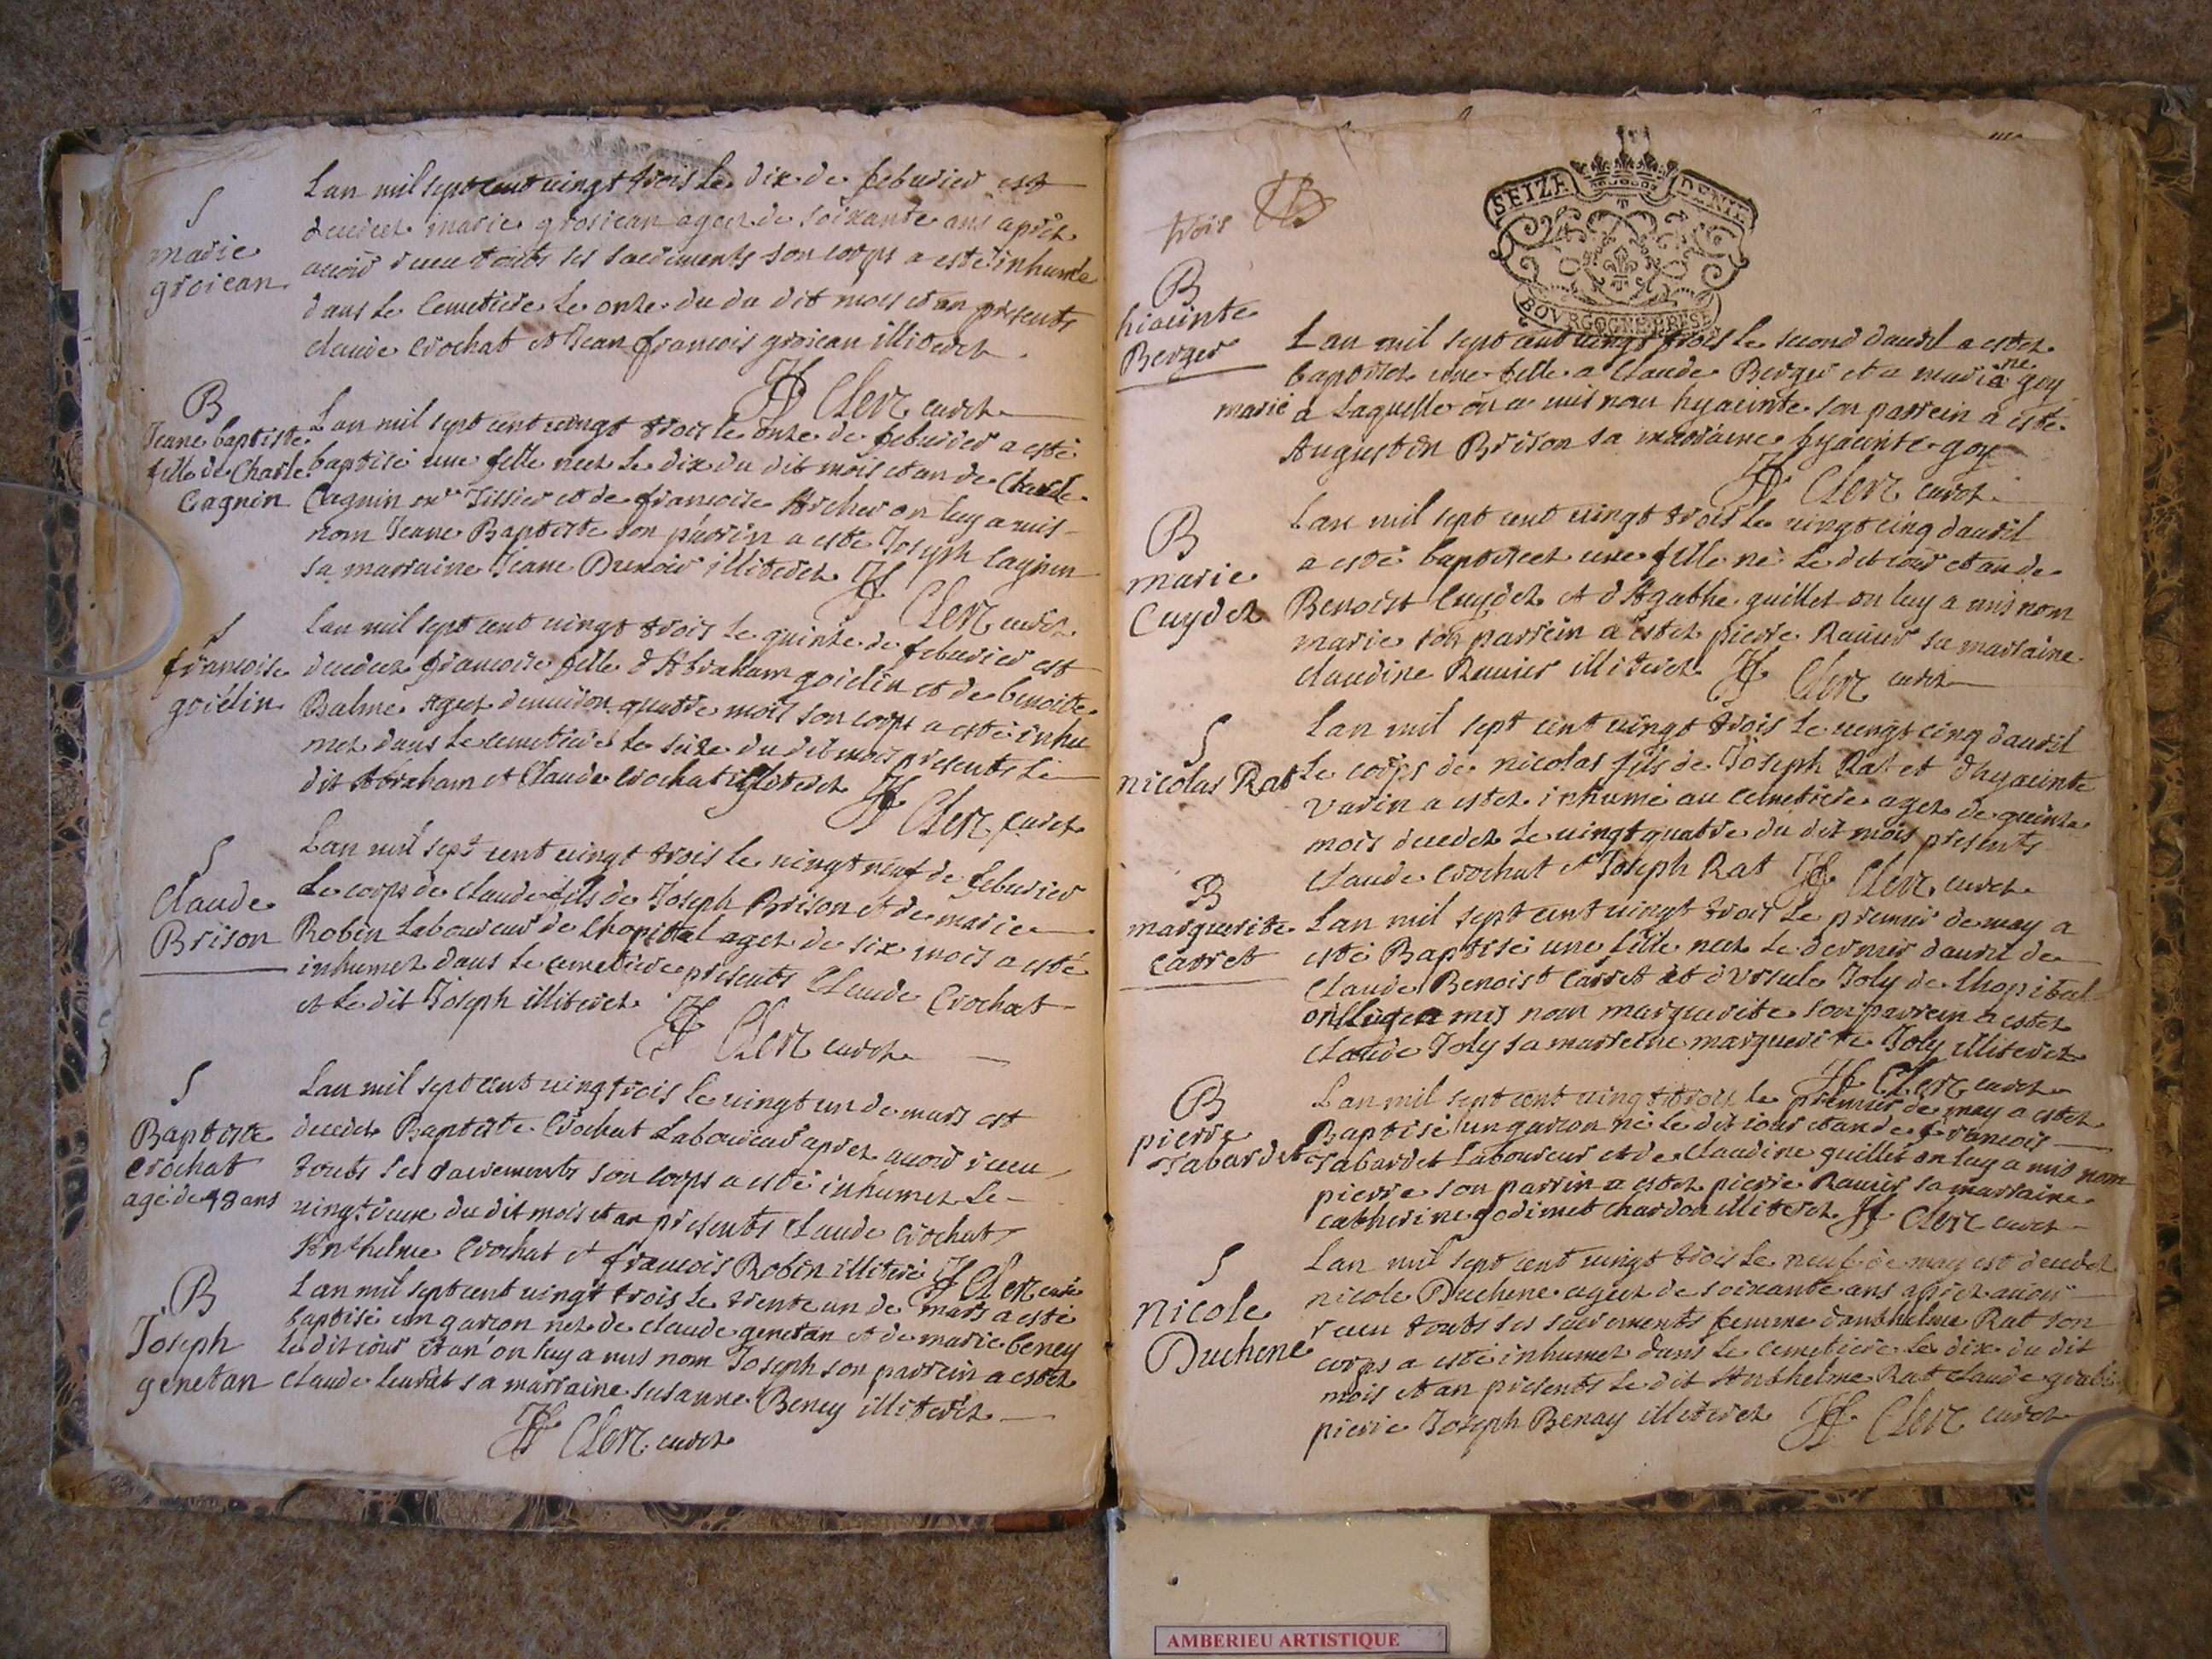 S
marie
groiean
Lan mil sept cent vingt trois le dix de feburier est
decedez marie grosiean agez de soixante ans aprez
auoir receu touts ses sacrements son corps a esté inhumée
dans le cemetiere le onze du du dit mois et an presents
claude crochat et Jean françois groiean illiterez
Clerc curez
B
Jeane baptiste
fille de Charle
Cagnin
Lan mil sept cent vingt trois le onze de feburier a esté
baptisé une fille neez le dix du dit mois et an de Charle
Cagnin Tissier et de françoise Archer on luy a mis
nom Jeane Baptiste son parrin a esté Joseph Cagnin
sa marraine Jeane illiterez
Clerc curez
S
françoise
goiélin
Lan mil sept cent vingt trois le quinze de feburier est
decedez françoise fille d'Abraham goielin et de benoite
Balme agez denuiron quatre mois son corps a esté inhu
mez dans le cemetiere le seize du dit mois presents le
dit Abraham et Claude crochat illiterez
Clerc curez
S
Claude
Brison
Lan mil sept cent vingt trois le vingt neuf de feburier
le corps de claude fils de Joseph Brison et de marie
Robin Laboureur de Lhopital agez de six mois a esté
inhumez dans le cemetiere presents Claude Crochat
et le dit Joseph illiterez
Clerc curez
S
Baptiste
crochat
agé de 48 ans
Lan mil sept cent vingt trois le vingt un de mars est
decedez Baptiste Crochat Laboureur aprez auoir receu
touts ses sacrements son corps a esté inhumez le
vingt deux du dit mois et an presents Claude Crochat
Anthelme Crochat et françois Robin illiteré Clerc curé
B
Joseph
genetan
Lan mil sept cent vingt trois le trente un de mars a esté
baptisé un garcon nez de claude genetan et de marie beney
le dit iour et an on luy a mis nom Joseph son parrein a estez
claude leurat sa marraine susanne Beney illiterez
Clerc curez
trois
SEIZE DENIE
BOVRGOGNE BRESSE
B
hiacinte
Berger
Lan mil sept cent vingt trois le second dauril a estez
baptisez une fille a Claude Berger et a mariane goy
marié a laquelle on a mis nom hyacinte son parrein a esté
Augustin Brison sa marraine hyacinte goy
Clerc curez
B
marie
Cuydez
Lan mil sept cent vingt trois le vingt cinq dauril
a esté baptiseez une fille né le dit iour et an de
Benoist Cuydez et d'Agathe guillet on luy a mis nom
marie son parrein a estez pierre Rauier sa marraine
claudine Rauier illiterez Clerc curez
S
nicolas Rat
Lan mil sept cent vingt trois le vingt cinq dauril
Le corps de nicolas fils de Joseph Rat et d'hyacinte
Varin a estez inhumé au cemetiere agez de quinze
mois decedez le vingt quatre du dit mois presents
Claude crochat et Joseph Rat Clerc curez
B
marguerite
carret
Lan mil sept cent vingt trois le premier de may a
esté Baptisé une fille neez le dernier dauril de
Claude Benoist Carret et d'Ursule Joly de Lhopital
on luy a mis nom marguerite son parrein a estez
claude Joly sa marreine marguerite Joly illiterez
Clerc curez
B
pierre
Tabardet
Lan mil sept cent vingt trois le premier de may a estez
Baptisé un garcon né le dit iour et an de François
Tabardet Laboureur et de claudine guillet on luy a mis nom
pierre son parrin a estez pierre Rauier sa marraine
catherine godimet chardon illiterez Clerc curez
S
Nicole
Duchene
Lan mil sept cent vingt trois le neuf de may est decedez
nicole Duchene ageez de soixante ans aprez auoir
receu touts ses sacrements femme danthelme Rat son
corps a esté inhumez dans le cemetiere le dix du dit
mois et an presents le dit Anthelme Rat claude
pierre Joseph Benay illiterez Clerc curez
AMBERIEU ARTISTIQUE